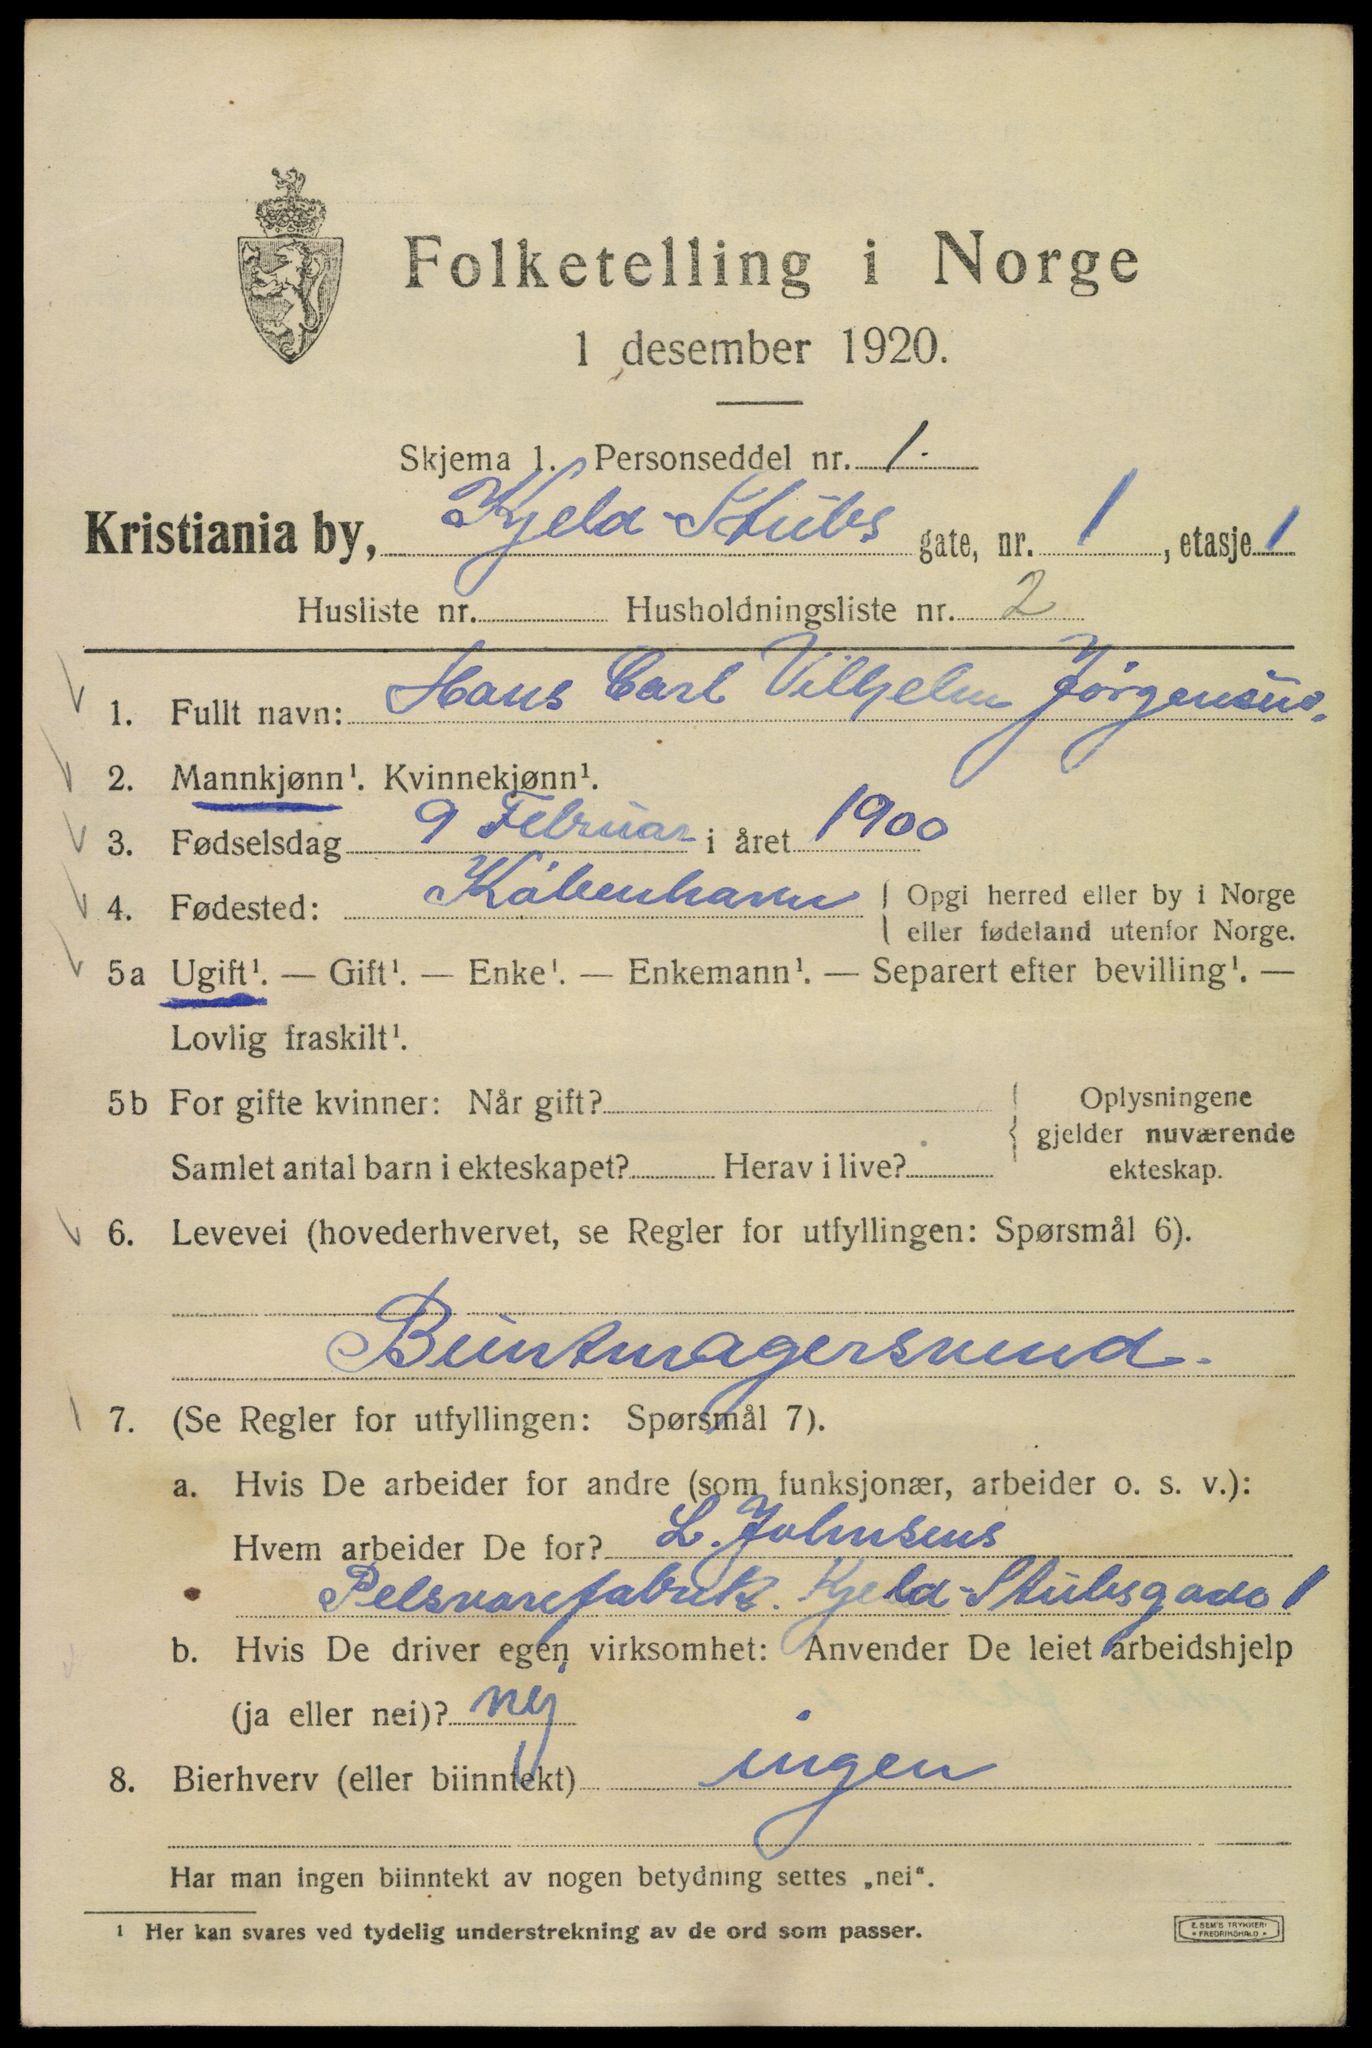 Folketelling i Norge
1 desember 1920.
Skjema 1. Personseddel nr. 1.
Kristiania by, Kjeld Stubs gate, nr. 1, etasje 1
Husliste nr. Husholdningsliste nr. 2
1. Fullt navn: Hans Carl Vilhjelm Jörgensen.
2. Mannkjønn¹. Kvinnekjønn¹.
3. Fødselsdag 9 Februar i året 1900
4. Fødested: Köbenhavn { Opgi herred eller by i Norge
eller fødeland utenfor Norge.
5a Ugift¹. — Gift¹. — Enke¹. — Enkemann¹. — Separert efter bevilling¹. —
Lovlig fraskilt¹.
5b For gifte kvinner: Når gift? { Oplysningene
gjelder nuværende
Samlet antal barn i ekteskapet? Herav i live? ekteskap.
6. Levevei (hovederhvervet, se Regler for utfyllingen: Spørsmål 6).
Buntmagersvend.
7. (Se Regler for utfyllingen: Spørsmål 7).
a. Hvis De arbeider for andre (som funksjonær, arbeider o. s. v.):
Hvem arbeider De for? L. Johnsens
Pelsvarefabrik. Kjeld-Stubsgade 1
b. Hvis De driver egen virksomhet: Anvender De leiet arbeidshjelp
(ja eller nei)? nej
8. Bierhverv (eller biinntekt) ingen
Har man ingen biinntekt av nogen betydning settes „nei“.
¹ Her kan svares ved tydelig understrekning av de ord som passer.
E. SEM'S TRYKKERI
• FREDRIKSHALD •